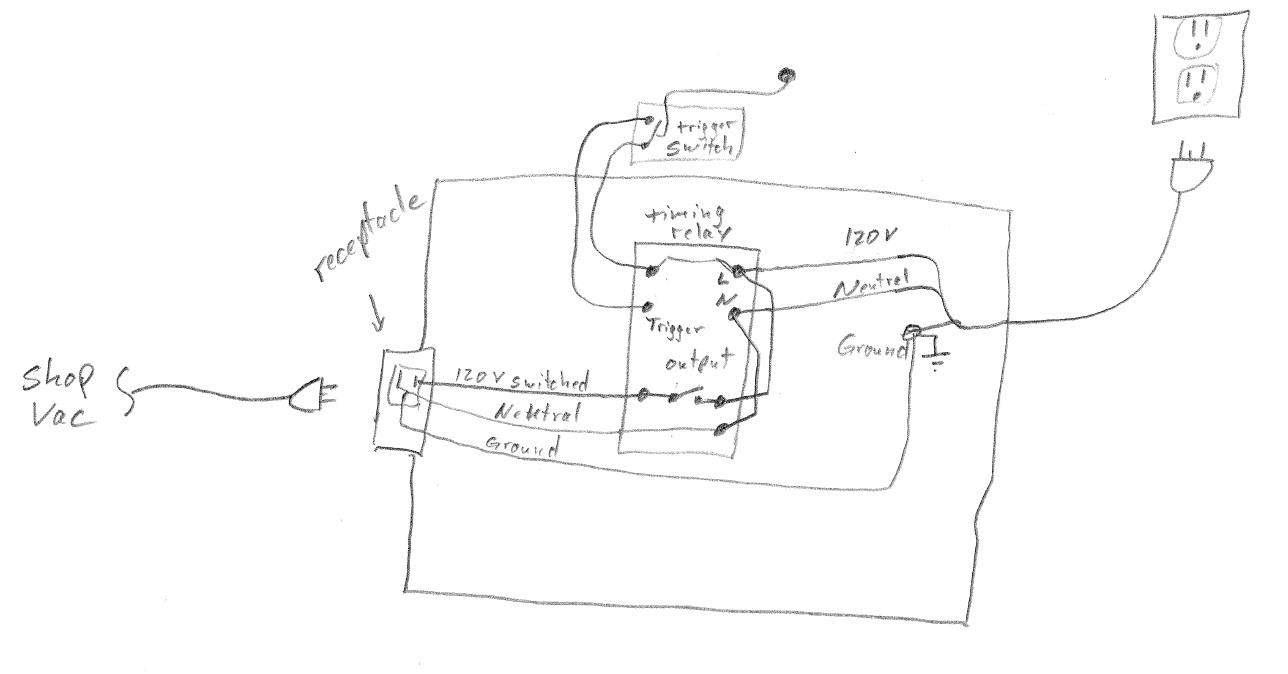 trigger
switch
receptacle
timing
relay
120V
L
Neutral
N
Trigger
Ground
output
Shop
Vac
120V switched
Neutral
Ground